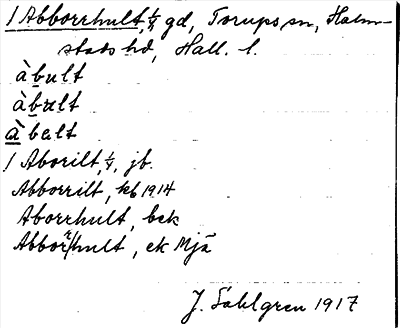 1 Abborrhult, 1/4 gd, Torups sn, Halm-
stads hd, Hall. l.
àbult
àbult
àbalt
1 Aborilt, 1/4, jb.
Abborrilt, kb 1914
Aborrhult, bek
Abborrhult, ek Mjä
J. Sahlgren 1917